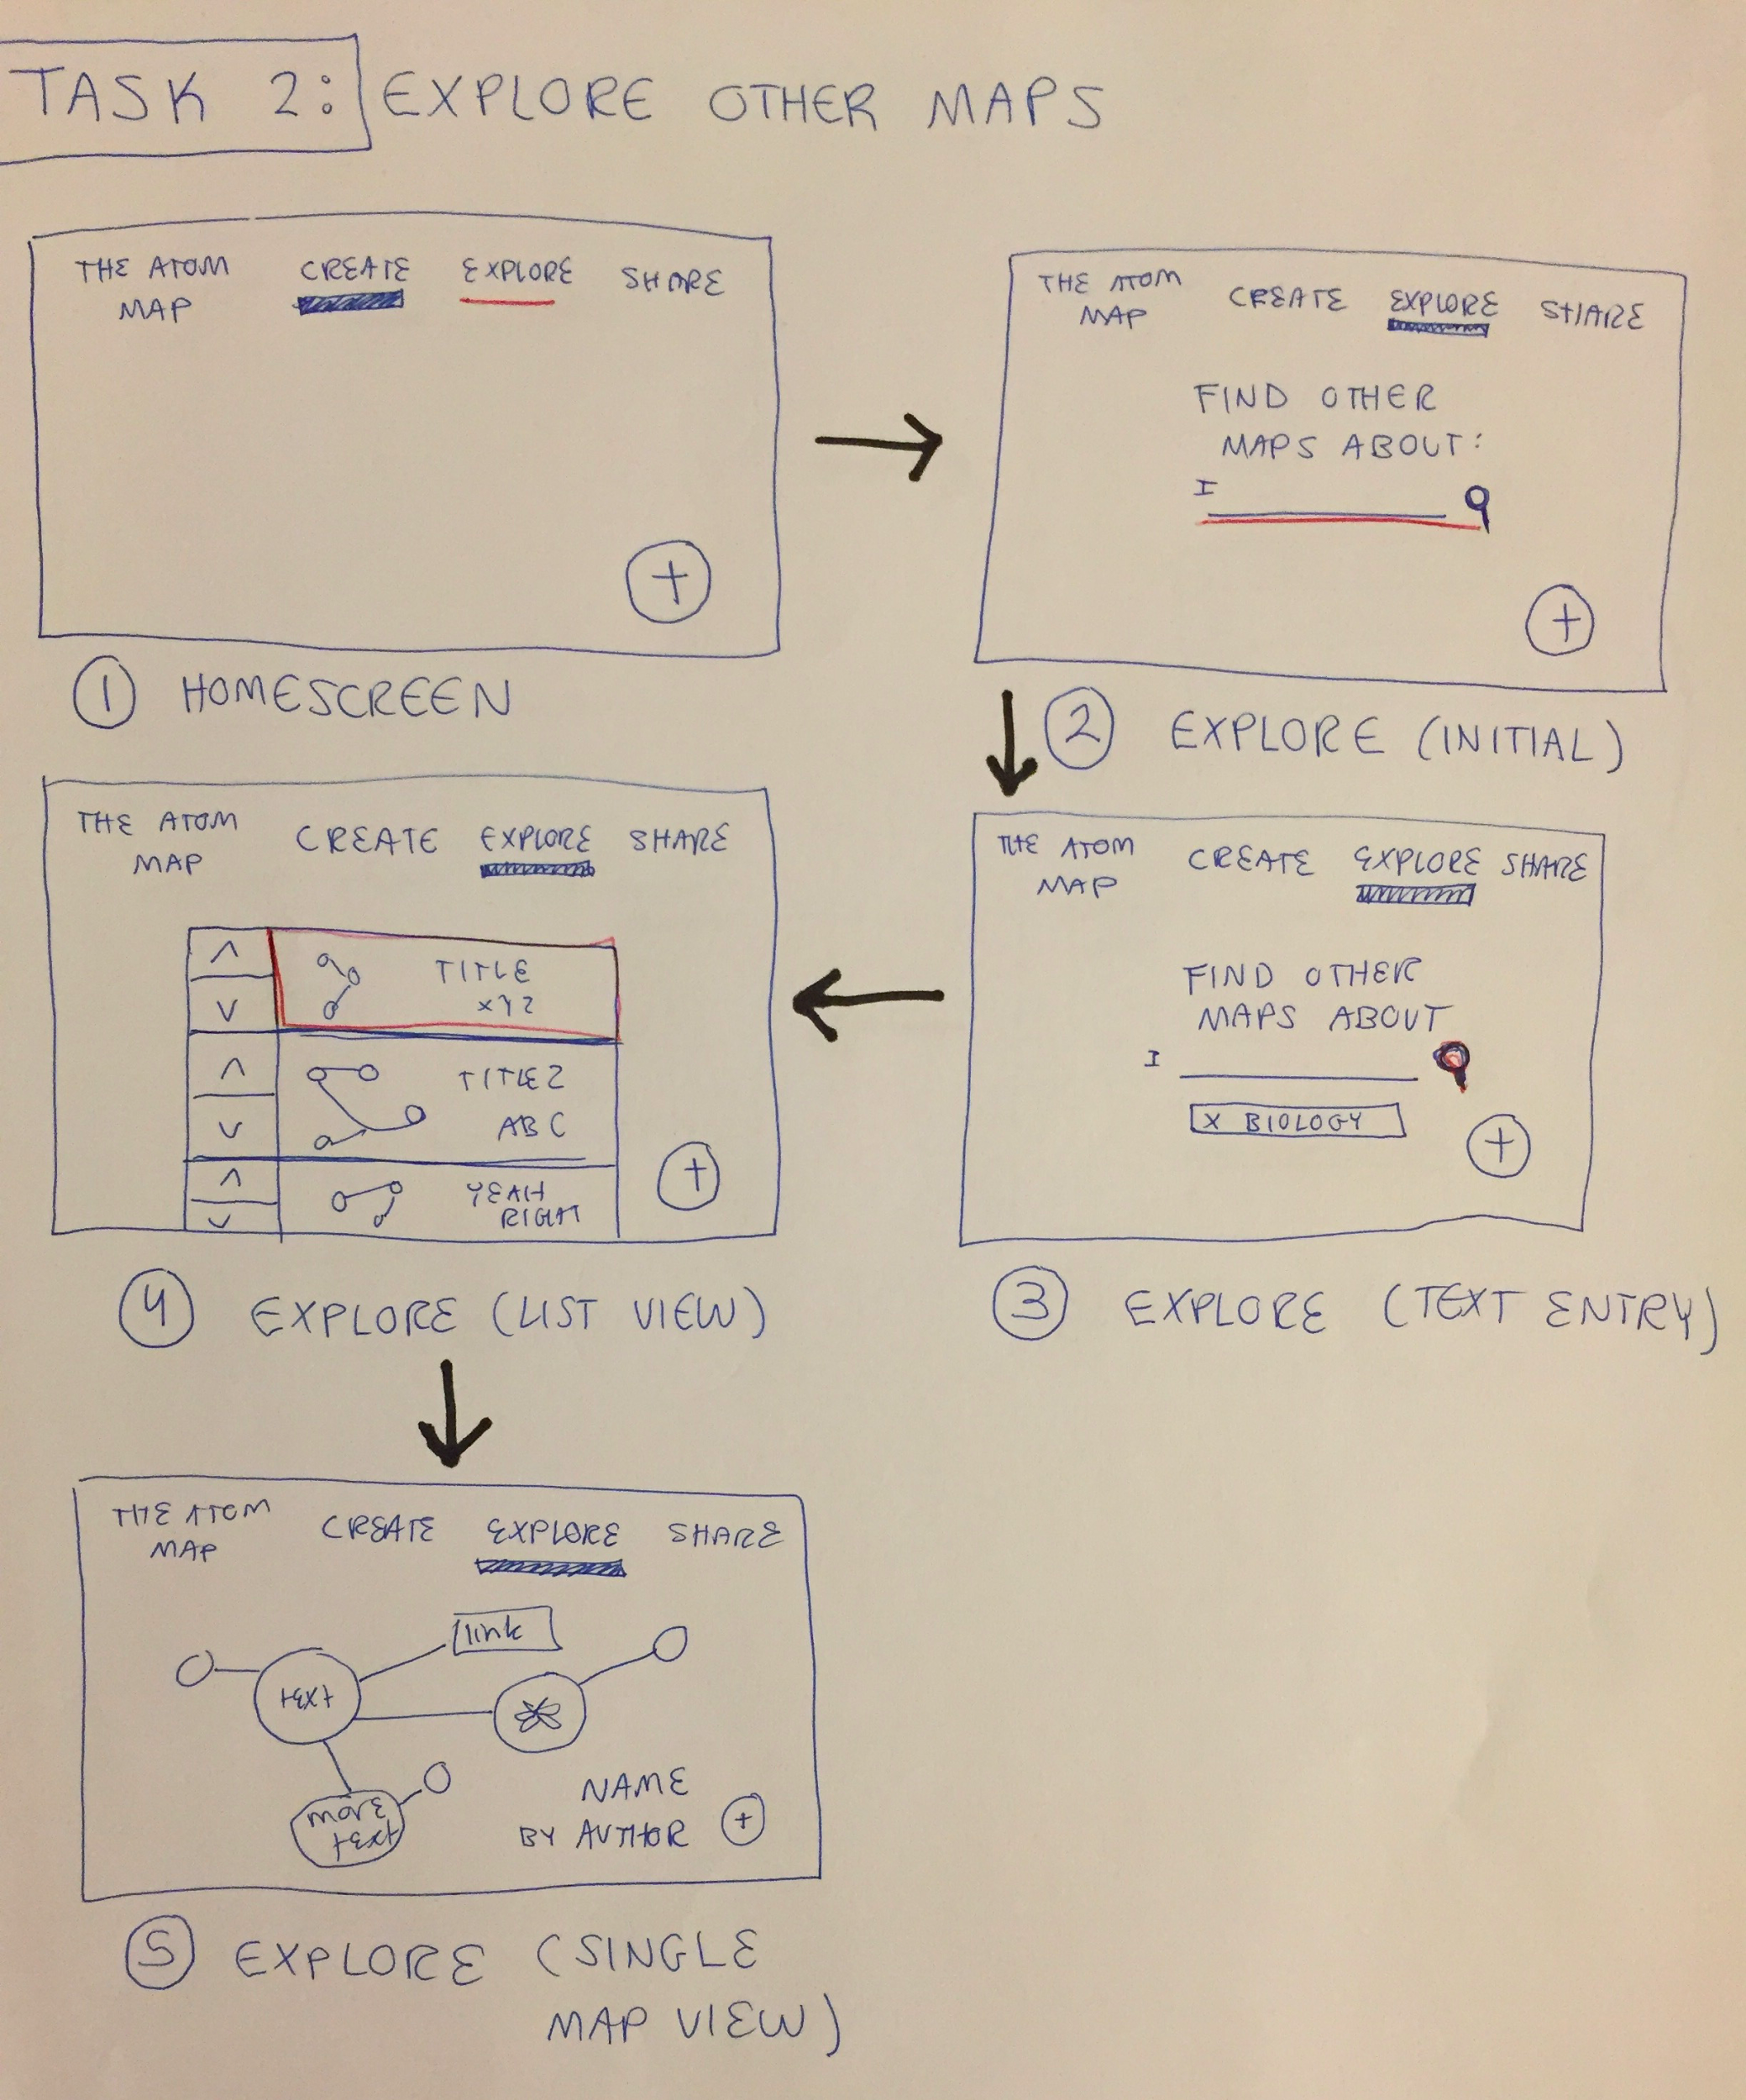 TASK 2: EXPLORE OTHER MAPS
THE ATOM MAP
CREATE EXPLORE SHARE
+
1 HOMESCREEN
THE ATOM MAP
CREATE EXPLORE SHARE
FIND OTHER
MAPS ABOUT:
I
+
2 EXPLORE (INITIAL)
THE ATOM MAP
CREATE EXPLORE SHARE
FIND OTHER
MAPS ABOUT
I
X BIOLOGY
+
3 EXPLORE (TEXT ENTRY)
THE ATOM MAP
CREATE EXPLORE SHARE
TITLE
XYZ
TITLE2
ABC
YEAH
RIGHT
+
4 EXPLORE (LIST VIEW)
THE ATOM MAP
CREATE EXPLORE SHARE
link
text
more
text
NAME
BY AUTHOR +
5 EXPLORE (SINGLE
MAP VIEW)